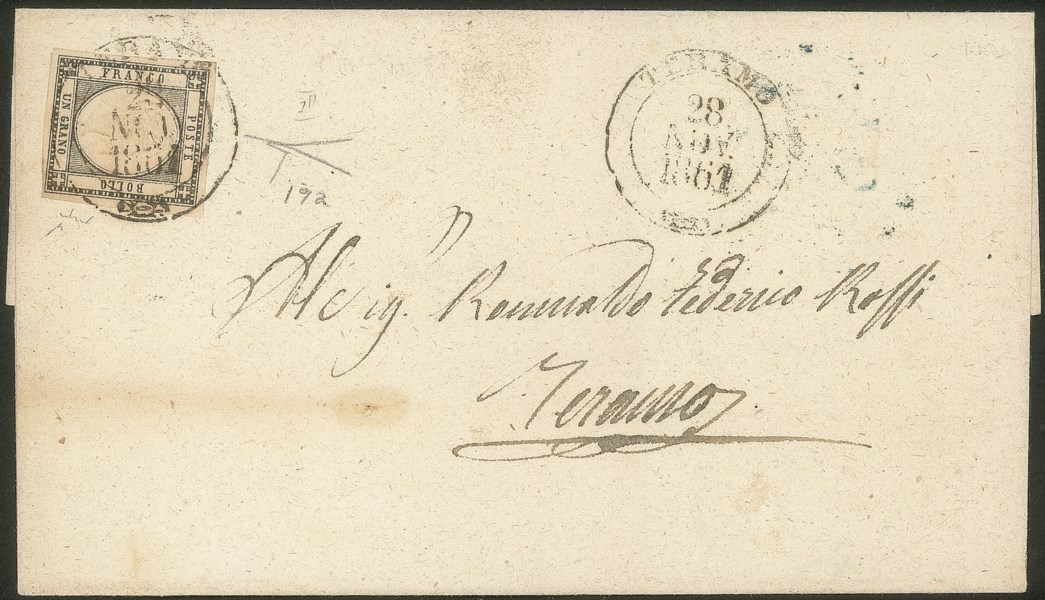 FRANCO
POSTE
BOLLO
UN GRANO
NOV
TERAMO
28
NOV.
1861
192
Al Sig.n Romualdo Federico Rossi
Teramo